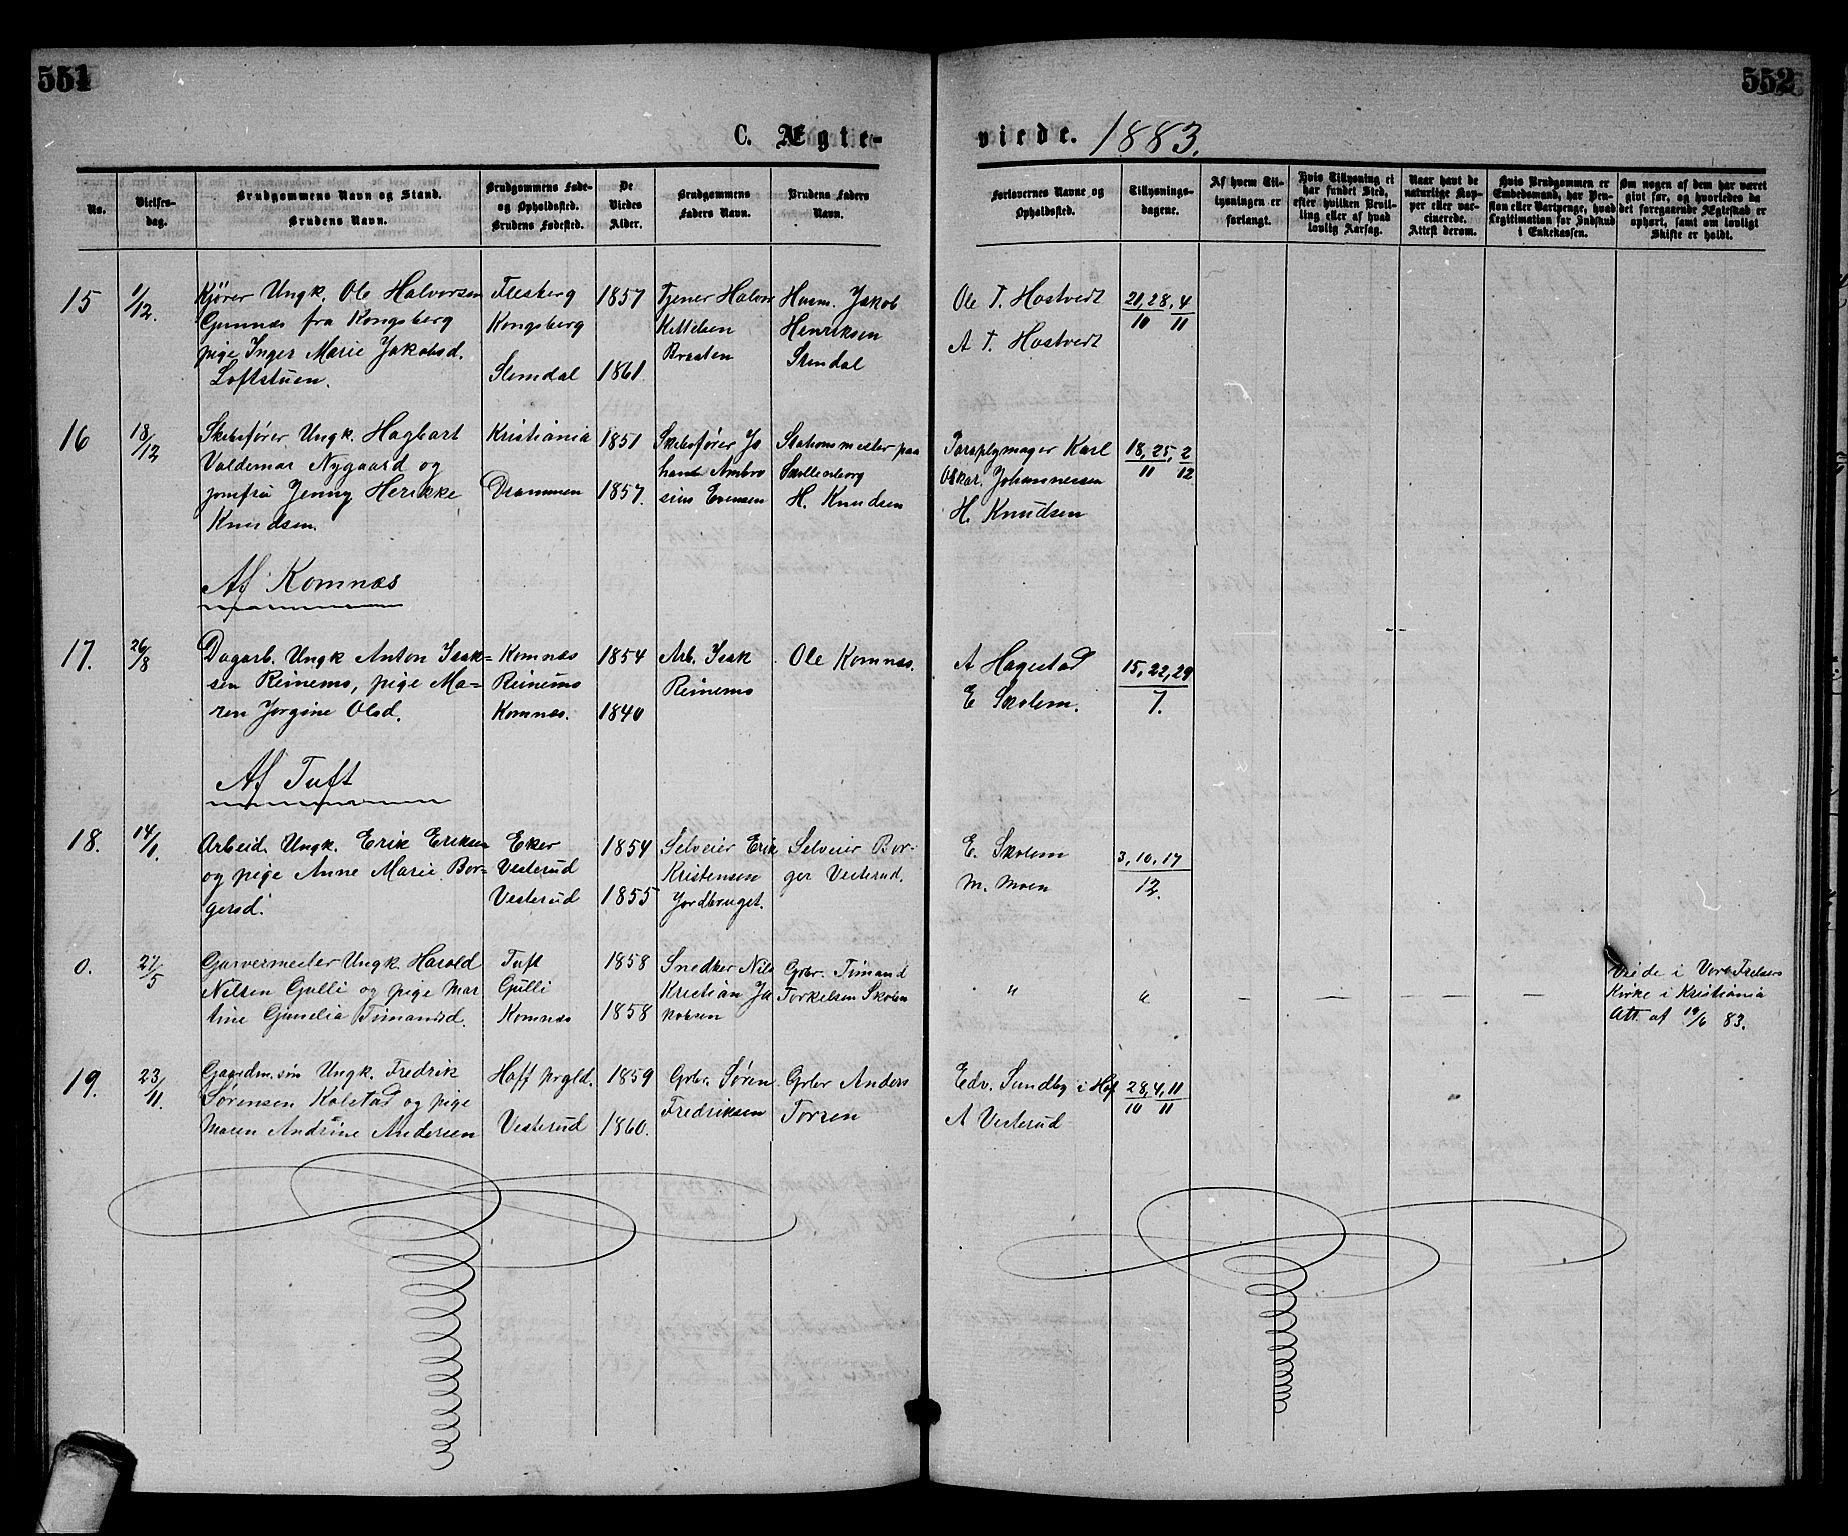 551
552
C. Ægte-
viede. 1883.
No.
Vielses-
dag.
Brudgommens Navn og Stand.
Brudens Navn.
Brudgommens Føde-
og Opholdssted.
Brudens Fødested.
De
Viedes
Alder.
Brudgommens
Faders Navn.
Brudens Faders
Navn.
Forlovernes Navne og
Opholdssted.
Tillysnings-
dagene.
Af hvem Til-
lysningen er
forlangt.
Hvis Tillysning ei
har fundet Sted,
efter hvilken Bevil-
ling eller af hvad
lovlig Aarsag.
Naar havt de
naturlige Kop-
per eller vac-
cinerede.
Attest derom.
Hvis Brudgommen er
Embedsmand, har Pen-
sion eller Vartpenge, hvad
Legitimation for Indskud
i Enkekassen.
Om nogen af dem har været
givt før, og hvorledes da
det foregaaende Ægteskab er
ophørt, samt om lovligt
Skifte er holdt.
15 1/12.
Kjører Ungk. Ole Halvorsen
Gunnæs fra Kongsberg
pige Inger Marie Jakobsd.
Loftstuen.
Flesberg
Kongsberg
Slemdal
1857
1861
Tjener Halvor
Kittelsen
Braaten
Husm. Jakob
Henriksen
Stendal
Ole T. Hostvedt
A T. Hostvedt
21, 28, 4
10 11
16 18/12
Skibsfører Ungk. Hagbart
Valdemar Nygaard og
jomfru Jenny Herikke
Knudsen.
Kristiania
Drammen
1851
1857.
Skibsfører Jo
hans Ambro
sius Evensen
Stationsmester paa
Skollenborg
H. Knudsen
Paraplymager Karl
Oskar Johannessen
H. Knudsen
18, 25, 2
11 12
Af Komnæs
17. 26/8
Dagarb. Ungk Anton Isak-
sen Reinemo, pige Ma-
ren Jørgine Olsd.
Komnæs
Reinemo
Komnæs.
1854
1840
Arb. Isak
Reinemo
Ole Komnæs.
A Hagestad
E Skolem.
15, 22, 29
7.
Af Tuft
18. 14/1.
Arbeid. Ungk. Erik Eriksen
og pige Anne Marie Bor-
gersd.
Eker
Vesterud
Vesterud
1854
1855
Selveier Erik
Kristensen
Jordbruget.
Selveier Bor-
ger Vesterud.
E. Skolem
M. Moen
3, 10, 17
12.
0. 27/5
Garvermester Ungk. Harold
Nilsen Gulli og pige Mar
tine Gunelia Timandsd.
Tuft
Gulli
Komnæs
1858
1858
Snedker Nils
Kristian Ja
kobsen
Grbr. Timand
Torkelsen Skolem
"
"
– – – –
Viede i Vor Frelsers
Kirke i Kristiania
Att. af 19/6 83.
19. 23/11.
Gaardm. søn Ungk. Fredrik
Sørensen Kolstad og pige
Maren Andrine Andersen
Hoff prgld.
Vesterud
1859
1860.
Grbr. Søren
Fredriksen
Grbr Anders
Torzen
Edv. Sundby i Hof
A Vesterud
28, 4, 11
10 11